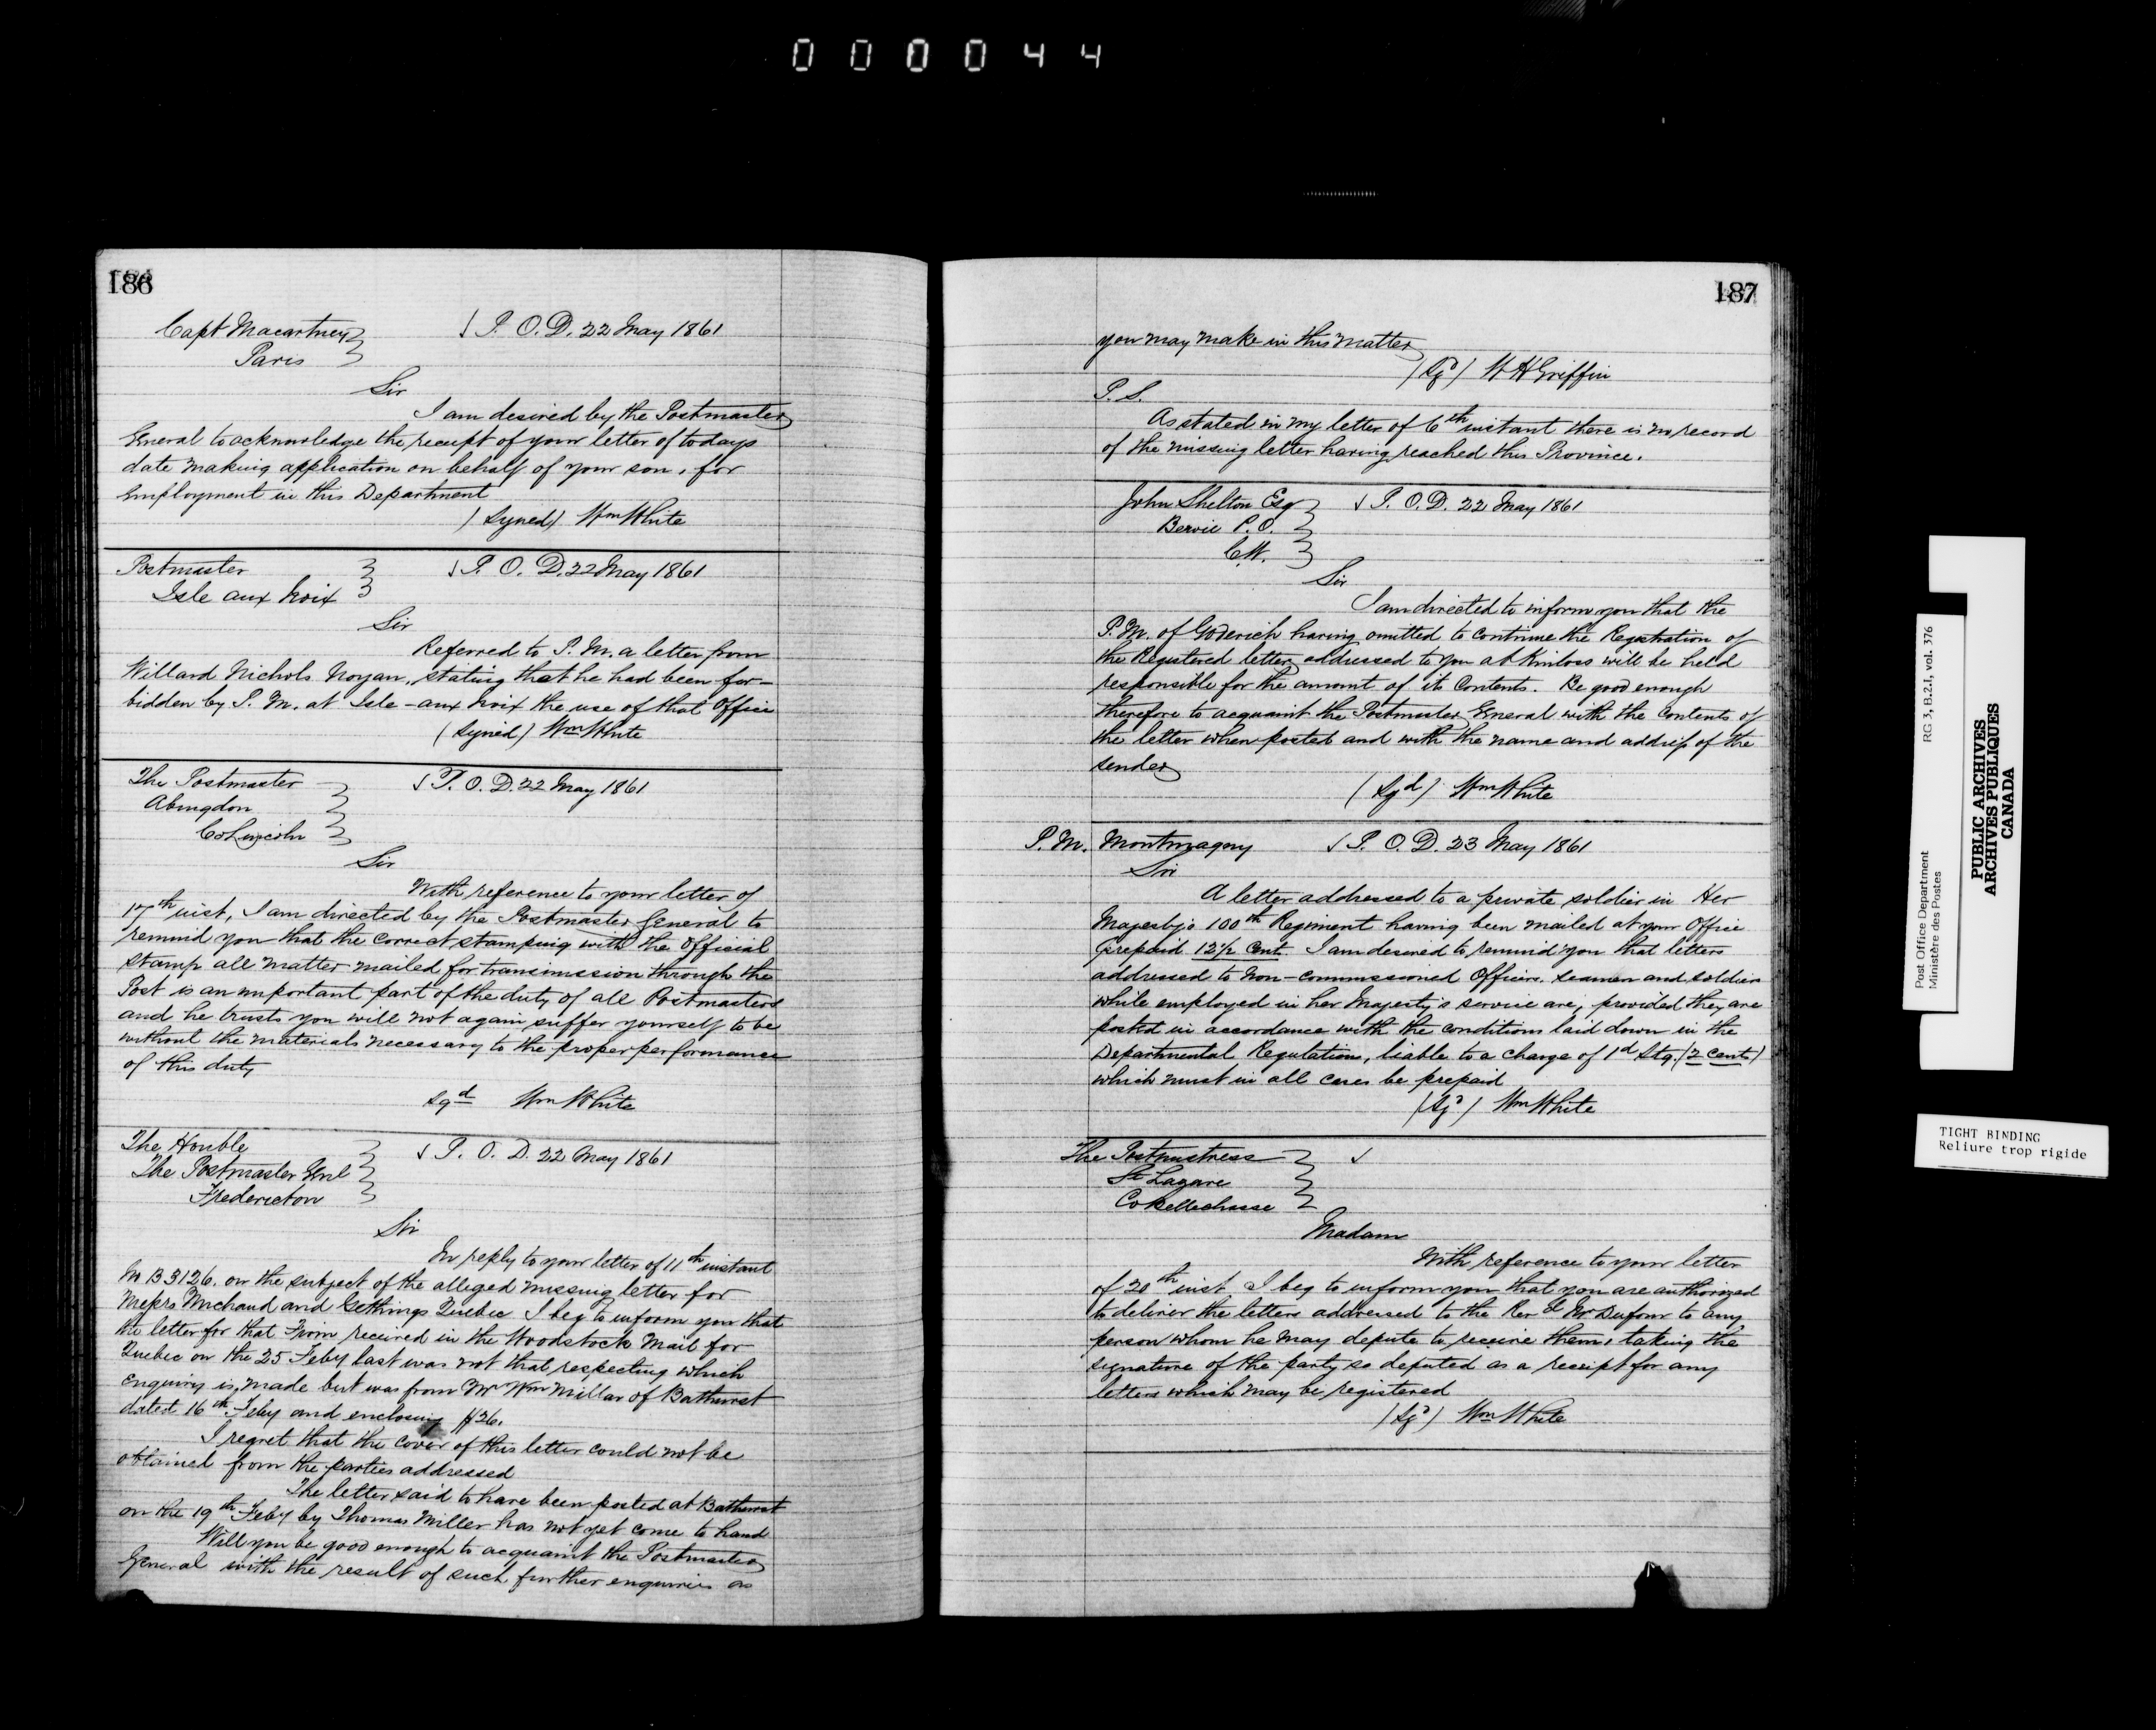 000044
186
Capt Macartney
Paris
P. O. D. 22 May 1861
Sir
I am desired by the Postmaster
General to acknowledge the receipt of your letter of todays
date making application on behalf of your son, for
Employment in this Department
(Signed) Wm White
Postmaster
Isle aux Noix
P. O. D. 22 May 1861
Sir
Referred to P. M. a letter from
Willard Nichols Noyan, stating that he had been for-
bidden by P. M. at Isle-aux Noix the use of that Office
(Signed) Wm White
The Postmaster
Abingdon
Co Lincoln
P. O. D. 22 May 1861
Sir
With reference to your letter of
17th inst, I am directed by the Postmaster General to
remind you that the correct stamping with the Official
Stamp all matter mailed for transmission through the
Post is an important part of the duty of all Postmasters
and he trusts you will not again suffer yourself to be
without the materials necessary to the proper performance
of this duty
sgd Wm White
The Honble
The Postmaster Genl
Fredericton
P. O. D. 22 May 1861
Sir
In reply to your letter of 11th instant
No B 3126. on the subject of the alleged missing letter for
Messrs Michaud and Gethings Quebec I beg to inform you that
the letter for that Firm received in the Woodstock Mail for
Quebec on the 25 Feby last was not that respecting which
Enquiry is made but was from Mr Wm Millar of Bathurst
dated 16th Feby and enclosing $26.
I regret that the cover of this letter could not be
obtained from the parties addressed
The letter said to have been posted at Bathurst
on the 19th Feby by Thomas Miller has not yet come to hand
Will you be good enough to acquaint the Postmaster
General with the result of such further enquiries as
187
you may make in this matter
(Sgd) W H Griffin
P. S.
As stated in my letter of 6th instant there is no record
of the missing letter having reached this Province.
John Shelton Esq
Bervie P. O.
C.W.
P. O. D. 22 May 1861
Sir
I am directed to inform you that the
P. M. of Goderich having omitted to continue the Registration of
the Registered letter addressed to you at Kinloss will be held
responsible for the amount of its Contents. Be good enough
therefore to acquaint the Postmaster General with the Contents of
the letter when posted and with the name and address of the
sender
(Sgd) Wm White
P. M. Montmagny
P. O. D. 23 May 1861
Sir
A letter addressed to a private soldier in Her
Majesty's 100th Regiment having been mailed at your Office
prepaid 12½ Cent. I am desired to remind you that letters
addressed to Non-commissioned Officers, seamen and soldiers
while employed in her Majesty's service are, provided they are
posted in accordance with the conditions laid down in the
Departmental Regulations, liable to a charge of 1d Stg. (2 cents)
which must in all cases be prepaid
(Sgd) Wm White
The Postmistress
St Lazare
Co Bellechasse
Madam
With reference to your letter
of 20th inst I beg to inform you that you are authorized
to deliver the letters addressed to the Revd Mr Dufour to any
person whom he may depute to receive them, taking the
signature of the party so deputed as a receipt for any
letters which may be registered
(Sgd) Wm White
Post Office Department
Ministère des Postes
RG 3, B.2.I, vol. 376
PUBLIC ARCHIVES
ARCHIVES PUBLIQUES
CANADA
TIGHT BINDING
Reliure trop rigide